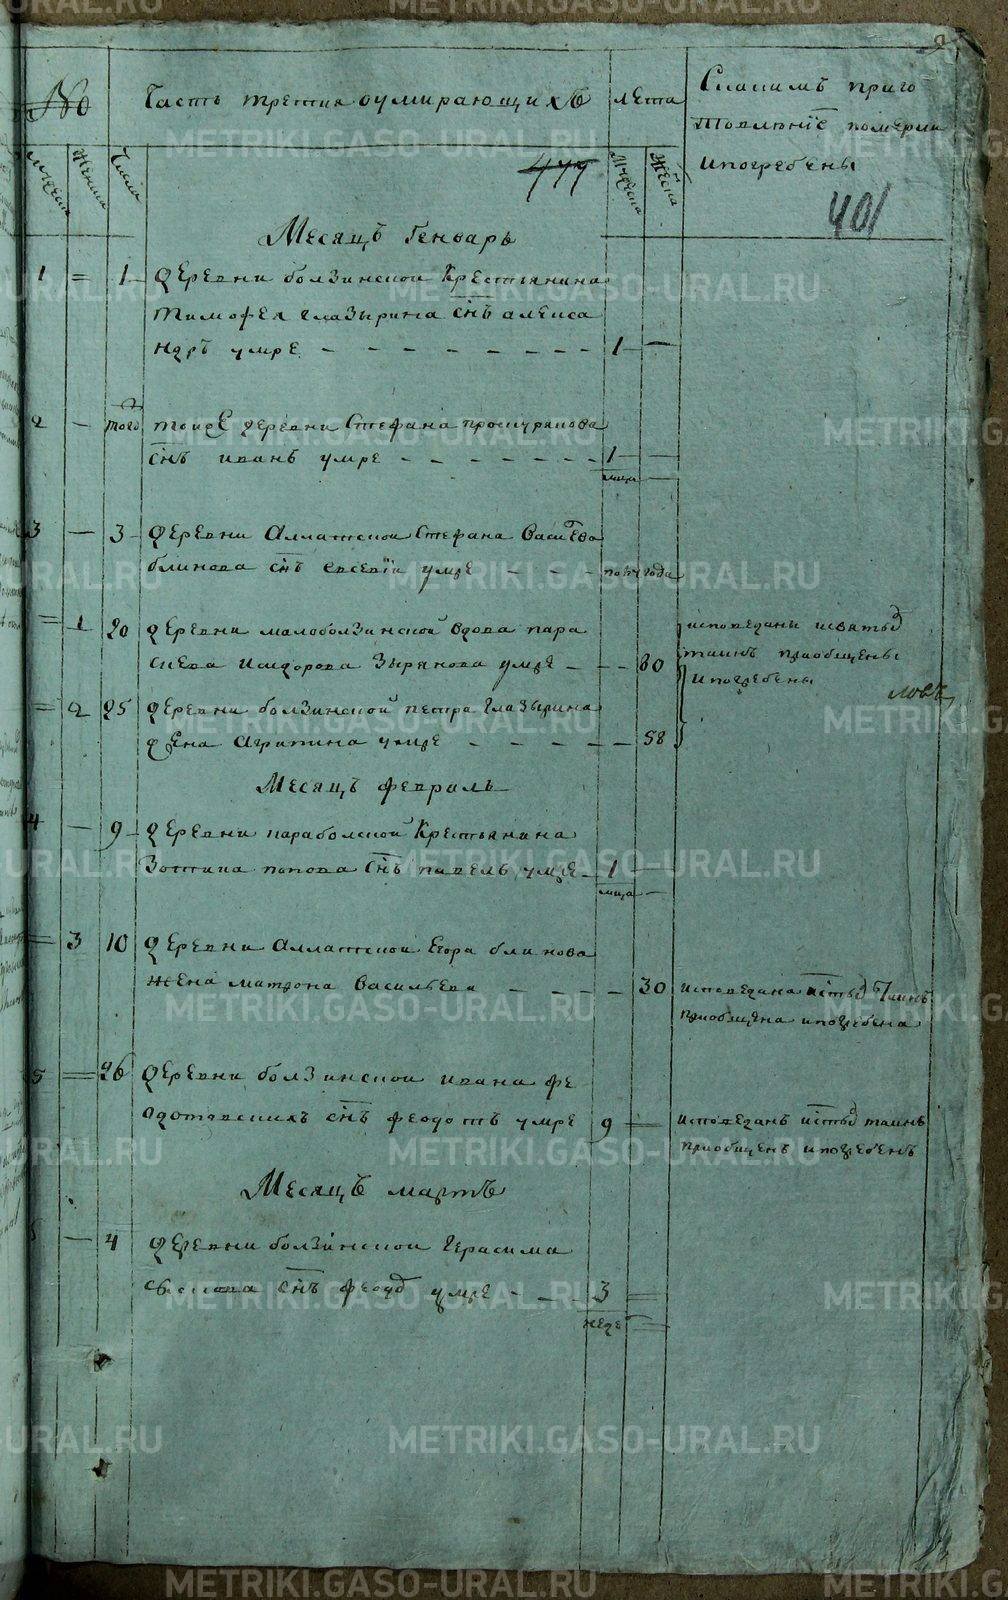 9
№ Часть третия оумирающихъ лета Скакимъ приго
товление померли
ипогребены
Мужеска Женска Число 477 Мужеска Женска
401
Месяцъ Генварь
1 = 1 деревни болзинской Крестьянина
Тимофея Глазырина снъ алекса
ндръ умре 1 —
2 — того тойже деревни Стефана проскурякова
снъ иванъ умре 1 —
меца
3 — 3 деревни Аллакской Стефана Васильева
блинова снъ евсевий умре полугода
= 1 20 деревни малоболзинской вдова пара исповеданы исвятыхъ
скева Исидорова Зырянова умре — 80 таинъ приобщены
ипогребены
= 2 25 деревни болзинской петра Глазырина
жена Агрипина умре — 58
Месяцъ февраль
4 — 9 деревни караболской Крестьянина
Зотика попова снъ павелъ умре 1 —
меца
= 3 10 деревни Аллакской Егора блинова
жена матрона Васильева — 30 исповедана истыхъ Таинъ
приобщена ипогребена
5 = 26 деревни болзинской ивана фе
одотовскихъ снъ феодотъ умре 9 — исповеданъ истыхъ таинъ
приобщенъ ипогребенъ
Месяцъ мартъ
5 — 4 деревни болзинской Герасима
снъ феодъ умре 3 =
неде
METRIKI.GASO-URAL.RU